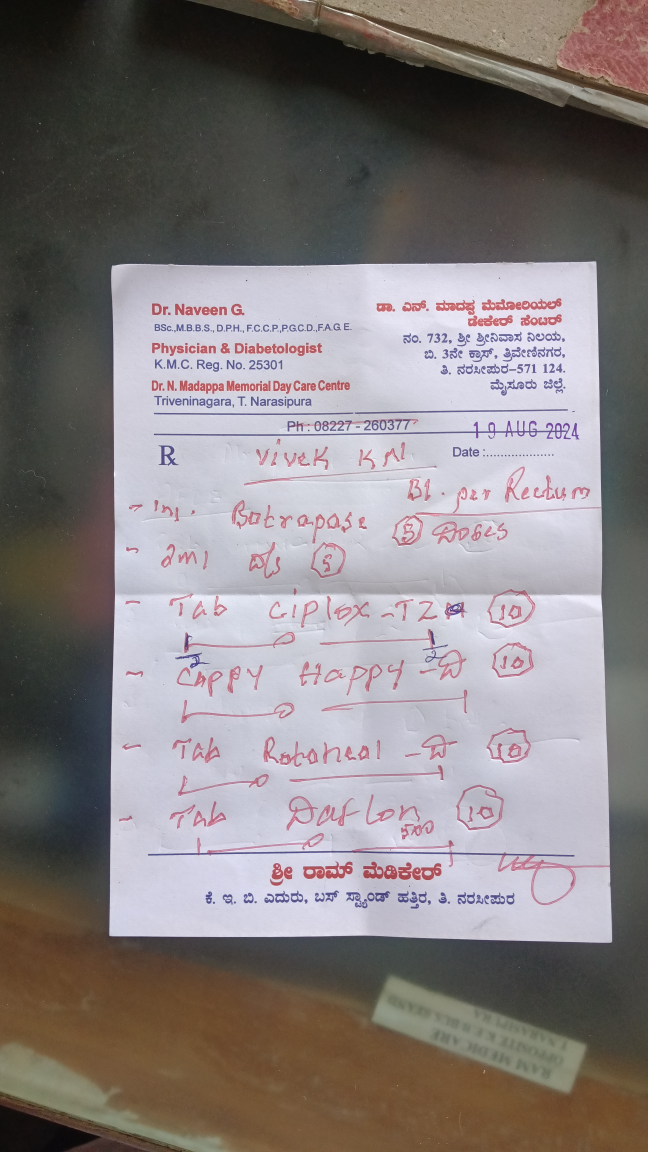 Dr. Naveen G.
BSc.,M.B.B.S., D.P.H., F.C.C.P.,P.G.C.D.,F.A.G.E.
Physician & Diabetologist
K.M.C. Reg. No. 25301
Dr. N. Madappa Memorial Day Care Centre
Triveninagara, T. Narasipura
ಡಾ. ಎನ್. ಮಾದಪ್ಪ ಮೆಮೋರಿಯಲ್
ಡೇಕೇರ್ ಸೆಂಟರ್
ನಂ. 732, ಶ್ರೀ ಶ್ರೀನಿವಾಸ ನಿಲಯ,
ಬಿ. 3ನೇ ಕ್ರಾಸ್, ತ್ರಿವೇಣಿನಗರ,
ತಿ. ನರಸೀಪುರ-571 124.
ಮೈಸೂರು ಜಿಲ್ಲೆ.
Ph : 08227 - 260377
19 AUG 2024
℞ Vivek KM Date :
Bl. per Rectum
- Inj. Botropase 5 Doses
- 2ml 5
- Tab Ciplox-TZ 10
1/2 1/2
- Happy - D 10
- Tab - D 10
- Tab Daflon 10
500
ಶ್ರೀ ರಾಮ್ ಮೆಡಿಕೇರ್
ಕೆ. ಇ. ಬಿ. ಎದುರು, ಬಸ್ ಸ್ಟ್ಯಾಂಡ್ ಹತ್ತಿರ, ತಿ. ನರಸೀಪುರ
RAM MEDICARE
OPPOSITE K.E.B BUS STAND
T.NARASIPURA